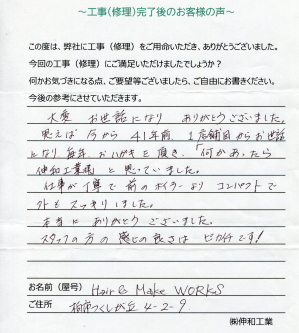 ～工事(修理)完了後のお客様の声～
この度は、弊社に工事（修理）をご用命いただき、ありがとうございました。
今回の工事（修理）にご満足いただけましたでしょうか？
何かお気づきになる点、ご要望等ございましたら、ご自由にお書きください。
今後の参考にさせていただきます。
大変 お世話になり ありがとうございました。
思えば 今から 41年前、1店舗目からお世話
になり 毎年 おハガキを頂き、「何かあったら
伸和工業様」と 思っていました。
仕事が丁寧で 前のボイラーより コンパクトで
外も スッキリしました。
本当に ありがとう ございました。
スタッフの方の 感じの良さは ピカイチです!
お名前（屋号） Hair & Make WORKS
ご住所 柏市つくしが丘 4-2-9
㈱伸和工業